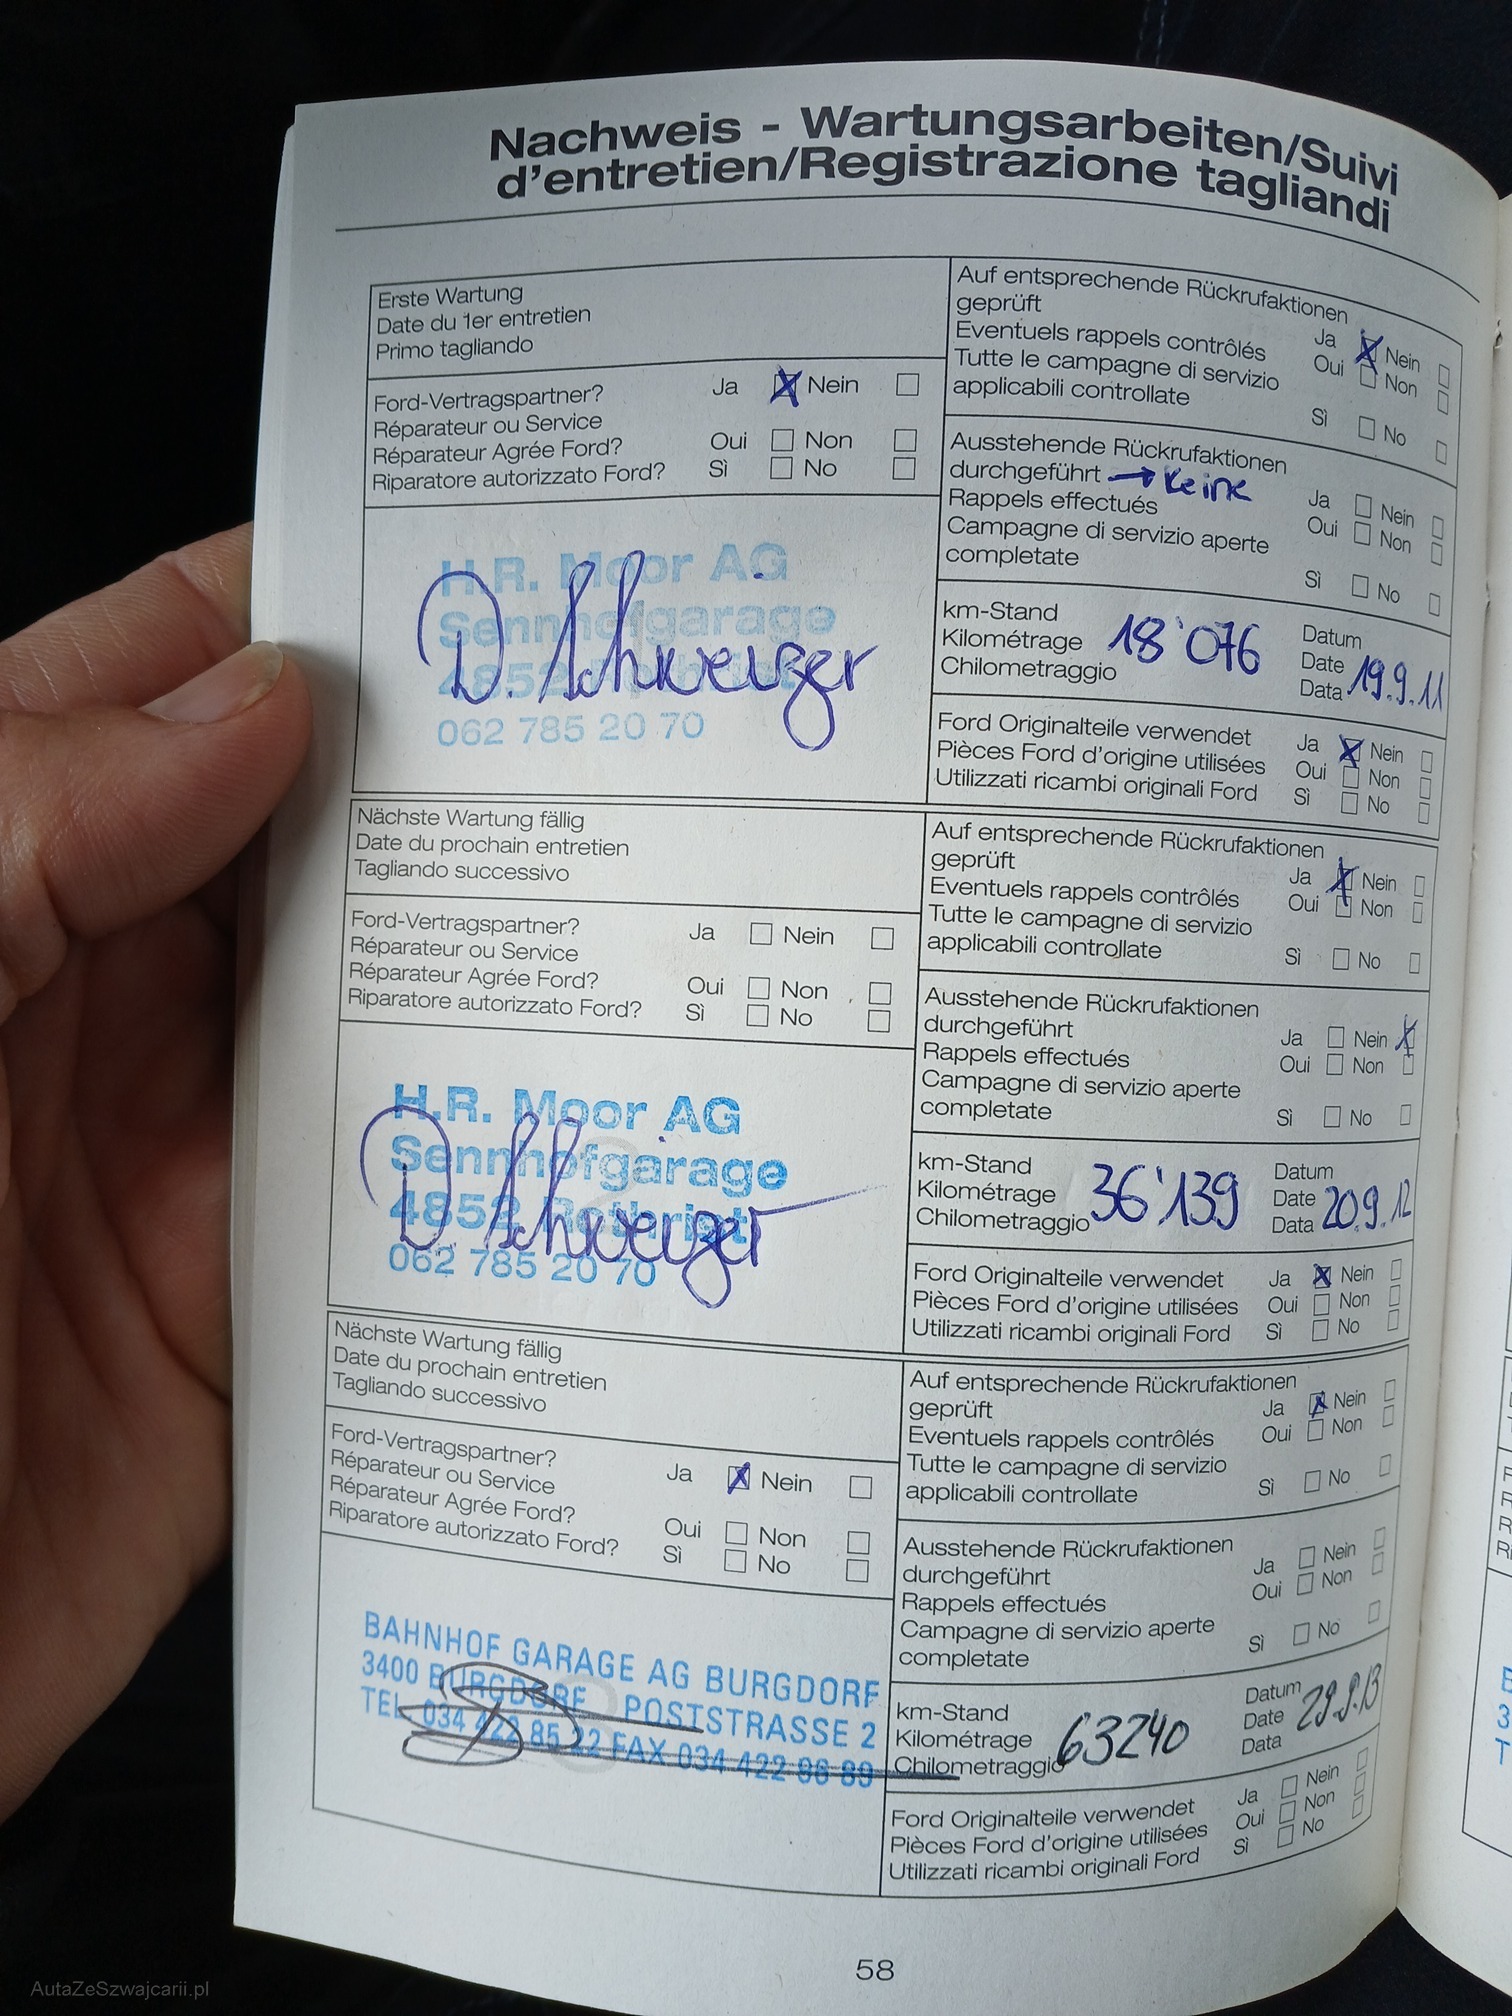 Nachweis - Wartungsarbeiten/Suivi
d'entretien/Registrazione tagliandi
Erste Wartung
Date du 1er entretien
Primo tagliando
Ford-Vertragspartner? Ja Nein
Réparateur ou Service
Réparateur Agrée Ford? Oui Non
Riparatore autorizzato Ford? Sì No
H.R. Moor AG
Sennhofgarage
D. Schweizer
4852 Rothrist
062 785 20 70
Auf entsprechende Rückrufaktionen
geprüft Ja Nein
Eventuels rappels contrôlés Oui Non
Tutte le campagne di servizio
applicabili controllate Sì No
Ausstehende Rückrufaktionen
durchgeführt → keine Ja Nein
Rappels effectués Oui Non
Campagne di servizio aperte
completate Sì No
km-Stand Datum
Kilométrage 18'076 Date 19.9.11
Chilometraggio Data
Ford Originalteile verwendet Ja Nein
Pièces Ford d'origine utilisées Oui Non
Utilizzati ricambi originali Ford Sì No
Nächste Wartung fällig
Date du prochain entretien
Tagliando successivo
Ford-Vertragspartner? Ja Nein
Réparateur ou Service
Réparateur Agrée Ford? Oui Non
Riparatore autorizzato Ford? Sì No
H.R. Moor AG
Sennhofgarage
4852 Rothrist
D. Schweizer
062 785 20 70
Auf entsprechende Rückrufaktionen
geprüft Ja Nein
Eventuels rappels contrôlés Oui Non
Tutte le campagne di servizio
applicabili controllate Sì No
Ausstehende Rückrufaktionen
durchgeführt Ja Nein
Rappels effectués Oui Non
Campagne di servizio aperte
completate Sì No
km-Stand Datum
Kilométrage 36'139 Date 20.9.12
Chilometraggio Data
Ford Originalteile verwendet Ja Nein
Pièces Ford d'origine utilisées Oui Non
Utilizzati ricambi originali Ford Sì No
Nächste Wartung fällig
Date du prochain entretien
Tagliando successivo
Ford-Vertragspartner? Ja Nein
Réparateur ou Service
Réparateur Agrée Ford? Oui Non
Riparatore autorizzato Ford? Sì No
BAHNHOF GARAGE AG BURGDORF
3400 BURGDORF POSTSTRASSE 2
TEL. 034 422 85 22 FAX 034 422
Auf entsprechende Rückrufaktionen
geprüft Ja Nein
Eventuels rappels contrôlés Oui Non
Tutte le campagne di servizio
applicabili controllate Sì No
Ausstehende Rückrufaktionen
durchgeführt Ja Nein
Rappels effectués Oui Non
Campagne di servizio aperte
completate Sì No
km-Stand Datum
Kilométrage 63240 Date 29.9.13
Chilometraggio Data
Ford Originalteile verwendet Ja Nein
Pièces Ford d'origine utilisées Oui Non
Utilizzati ricambi originali Ford Sì No
58
AutaZeSzwajcarii.pl